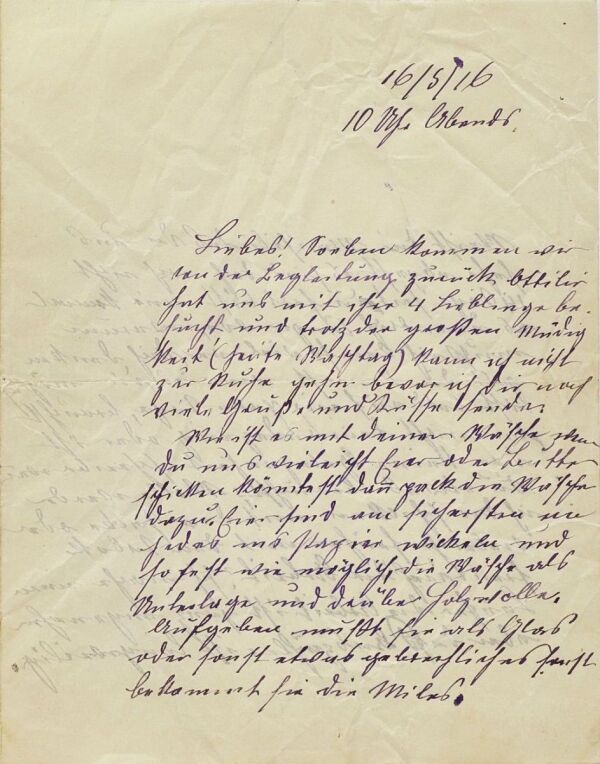 16/5/16
10 Uhr Abends.
Liebes! Soeben kommen wir
von der Begleitung zurück. Ottilie
hat uns mit ihre 4 Lieblinge be-
sucht und trotz der großen Müdig
keit (heute Waschtag) kann ich nicht
zur Ruhe gehn bevor ich dir noch
viele Grüße und Küsse sende.
Wie ist es mit deiner Wäsche, wen
du uns vieleicht Eier oder Butter
schicken könntest dañ pack die Wäsche
dazu. Eier sind am sichersten ein
jedes ins Papier wickeln und
so fest wie möglich, die Wäsche als
Unterlage und drüber Holzwolle.
Aufgeben mußt sie als Glas
oder sonst etwas gebrechliches sonst
bekommt sie die